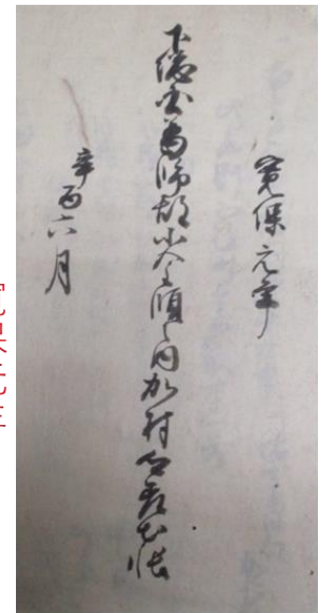 寛保元年
下総国葛飾郡小金領之内加村差出帳
辛酉六月